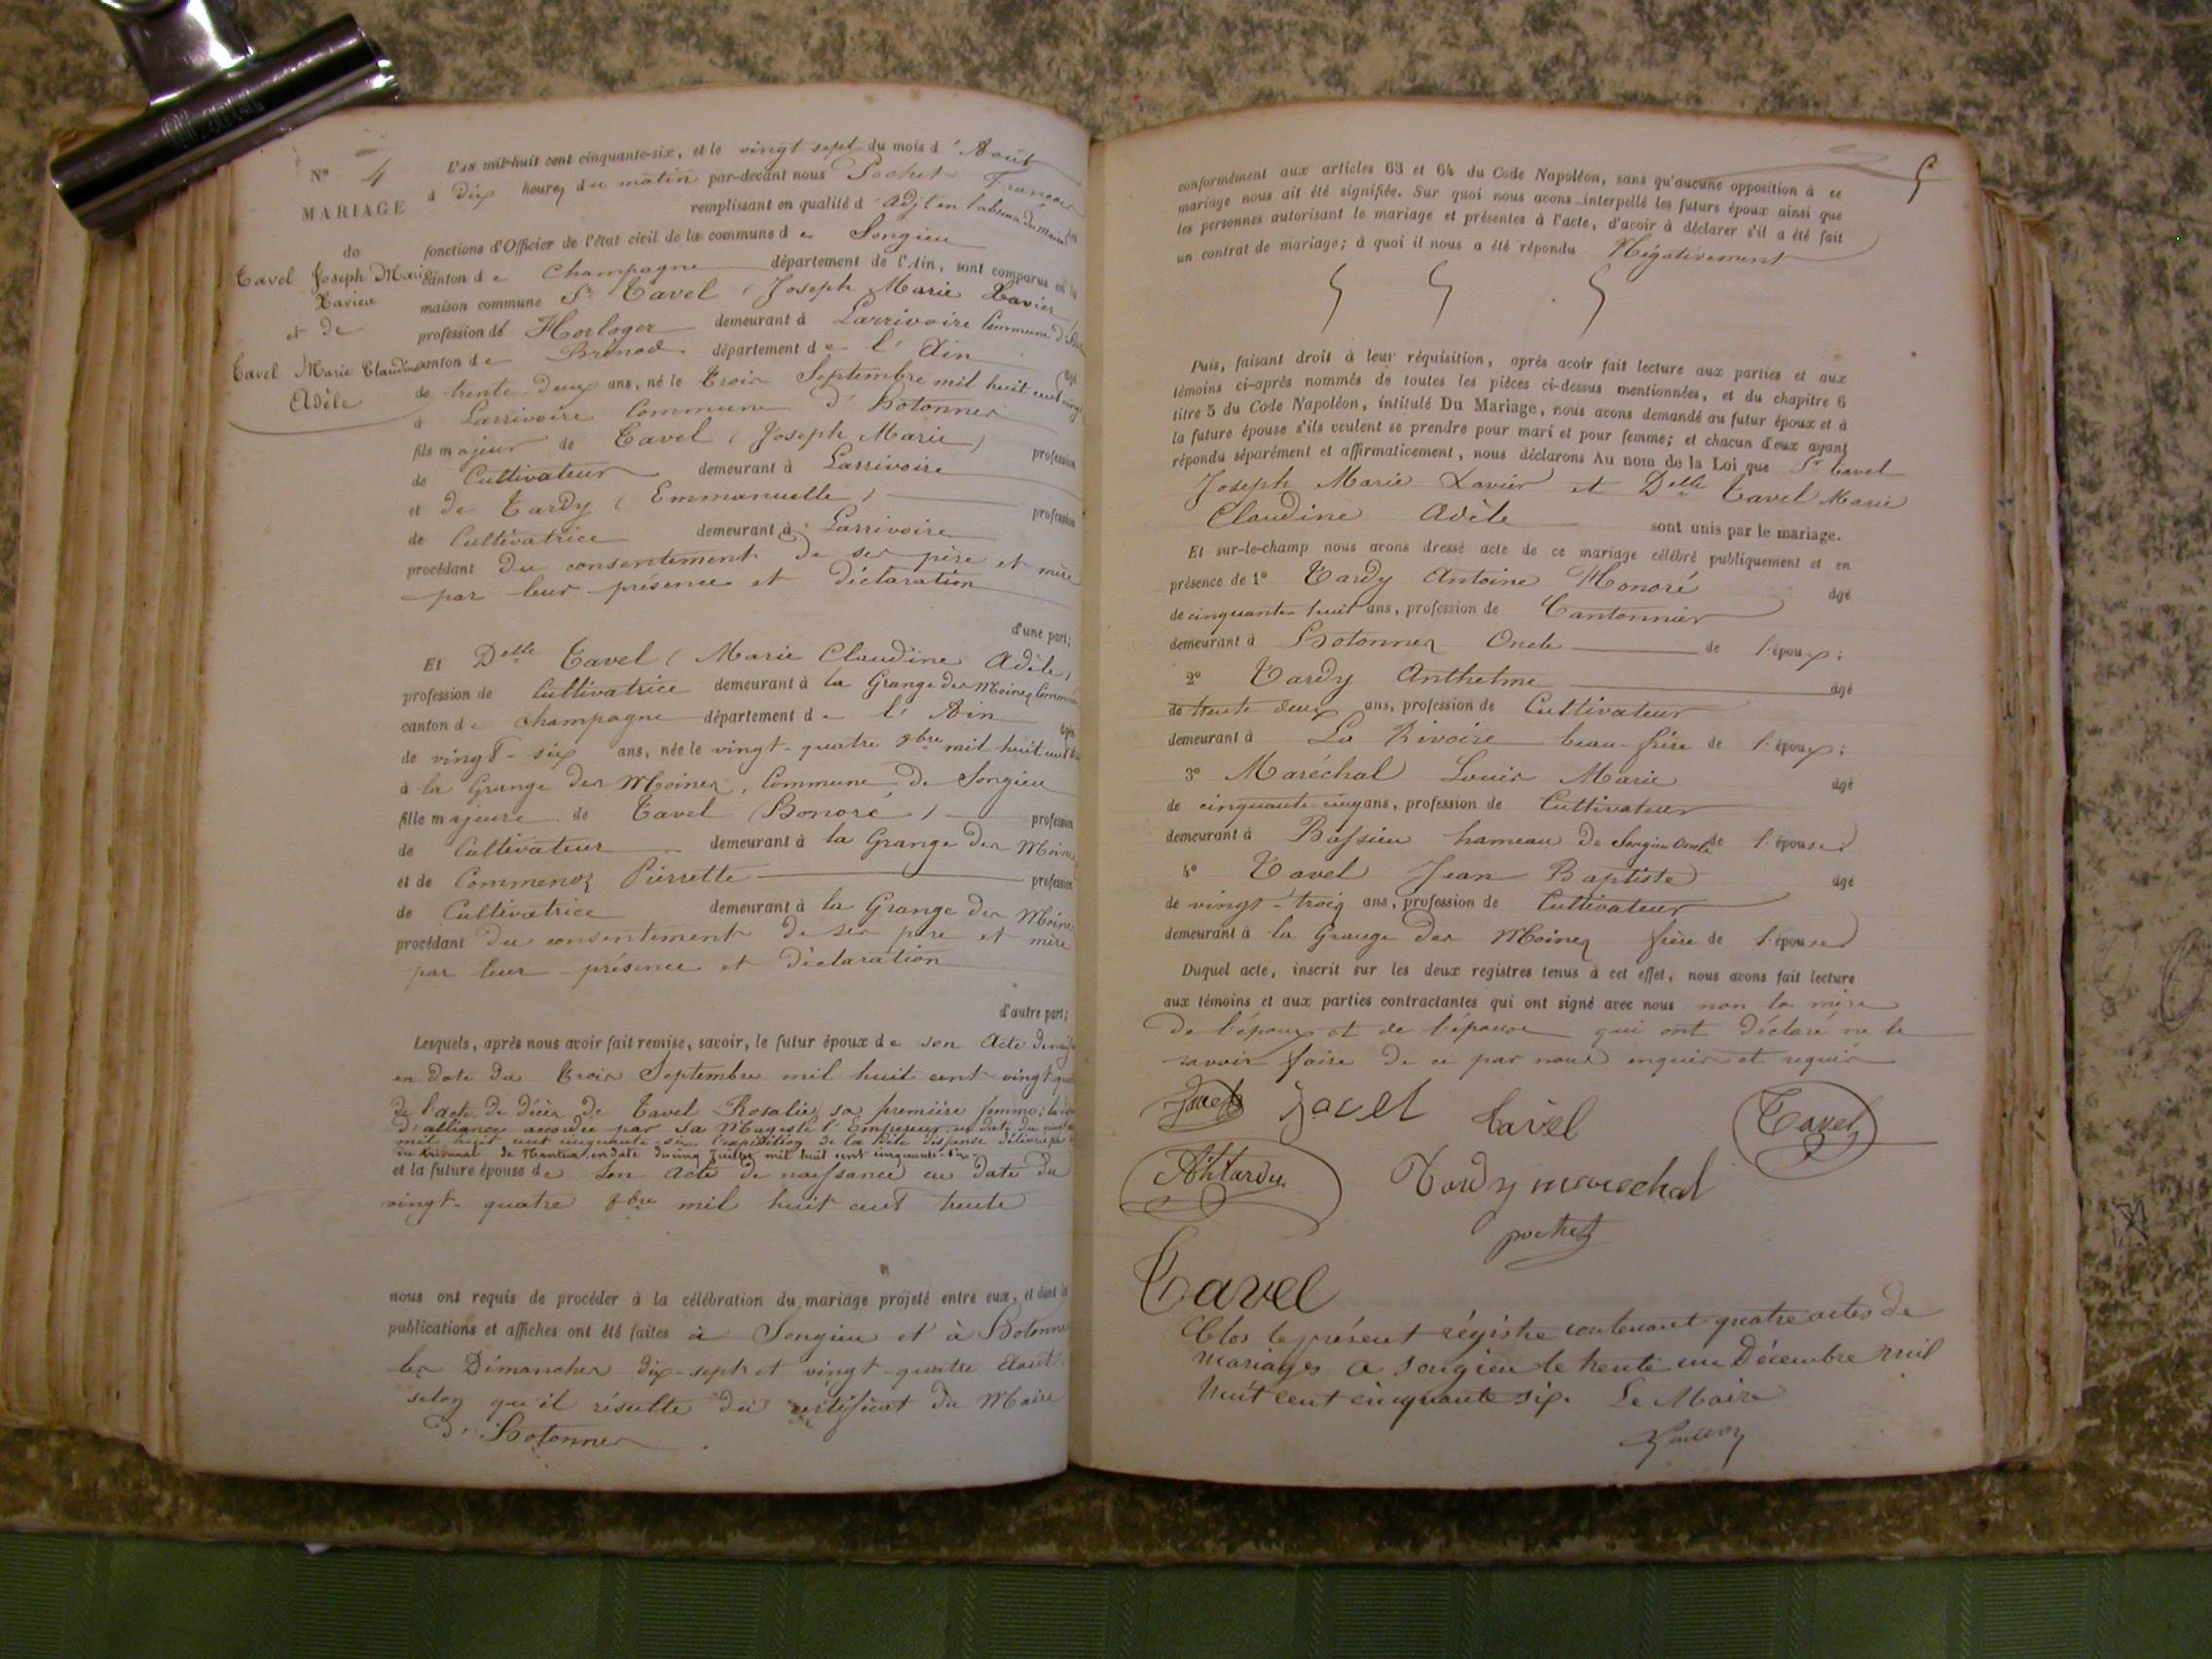 N° 4
MARIAGE
de
Tavel Joseph Marie
Xavier
et de
Tavel Marie Claudine
Adèle
L'an mil-huit cent cinquante-six, et le vingt sept du mois d'Août
à Dix heures du matin par-devant nous Pochet François
remplissant en qualité d'Adjt en l'absence du maire les
fonctions d'Officier de l'état civil de la commune de Songieu
canton de Champagne département de l'Ain, sont comparus en la
maison commune Sr Tavel (Joseph Marie Xavier)
profession de Horloger demeurant à Larrivoire Commune d'
canton de Brénod département de l'Ain âgé
de trente-deux ans, né le trois Septembre mil huit cent vingt
à Larrivoire Commune d'Hotonnes
fils majeur de Tavel (Joseph Marie) profession
de Cultivateur demeurant à Larrivoire
et de Tardy (Emmanuelle) profession
de Cultivatrice demeurant à Larrivoire
procédant du consentement de ses père et mère
par leur présence et déclaration
d'une part;
Et Delle Tavel (Marie Claudine Adèle)
profession de Cultivatrice demeurant à la Grange des Moines Commune
canton de Champagne département de l'Ain âgée
de vingt-six ans, née le vingt-quatre 9bre mil huit cent
à la Grange des Moines, Commune de Songieu
fille majeure de Tavel (Honoré) profession
de Cultivateur demeurant à la Grange des Moines
et de Commenoz Pierrette profession
de Cultivatrice demeurant à la Grange des Moines
procédant du consentement de ses père et mère
par leur présence et déclaration
d'autre part;
Lesquels, après nous avoir fait remise, savoir, le futur époux de son Acte de
en date du trois Septembre mil huit cent vingt
de l'acte de décès de Tavel Rosalie sa première femme;
d'alliance accordée par Sa Majesté l'Empereur en date du
mil huit cent cinquante-six l'expédition de la dite dispense délivrée
du tribunal de Nantua en date du cinq Juillet mil huit cent cinquante-six
et la future épouse de son acte de naissance en date du
vingt-quatre 9bre mil huit cent trente
nous ont requis de procéder à la célébration du mariage projeté entre eux, et dont les
publications et affiches ont été faites à Songieu et à Hotonnes
les Dimanches dix-sept et vingt-quatre Août
selon qu'il résulte du certificat du Maire
d'Hotonnes
5
conformément aux articles 63 et 64 du Code Napoléon, sans qu'aucune opposition à ce
mariage nous ait été signifiée. Sur quoi nous avons interpellé les futurs époux ainsi que
les personnes autorisant le mariage et présentes à l'acte, d'avoir à déclarer s'il a été fait
un contrat de mariage; à quoi il nous a été répondu Négativement
Puis, faisant droit à leur réquisition, après avoir fait lecture aux parties et aux
témoins ci-après nommés de toutes les pièces ci-dessus mentionnées, et du chapitre 6
titre 5 du Code Napoléon, intitulé Du Mariage, nous avons demandé au futur époux et à
la future épouse s'ils veulent se prendre pour mari et pour femme; et chacun d'eux ayant
répondu séparément et affirmativement, nous déclarons Au nom de la Loi que Sr Tavel
Joseph Marie Xavier et Delle Tavel Marie
Claudine Adèle sont unis par le mariage.
Et sur-le-champ nous avons dressé acte de ce mariage célébré publiquement et en
présence de 1° Tardy Antoine Honoré âgé
de cinquante-huit ans, profession de Cantonnier
demeurant à Hotonnes Oncle de l'époux;
2° Tardy Anthelme âgé
de trente deux ans, profession de Cultivateur
demeurant à La Rivoire beau-frère de l'époux;
3° Maréchal Louis Marie âgé
de cinquante-cinq ans, profession de Cultivateur
demeurant à Bassieu hameau de Songieu Oncle de l'épouse;
4° Tavel Jean Baptiste âgé
de vingt-trois ans, profession de Cultivateur
demeurant à la Grange des Moines frère de l'épouse
Duquel acte, inscrit sur les deux registres tenus à cet effet, nous avons fait lecture
aux témoins et aux parties contractantes qui ont signé avec nous non la mère
de l'époux et de l'épouse qui ont déclaré ne le
savoir faire de ce par nous enquis et requis
Tavel Tavel Tavel
Tardy marechal
pochet
Tavel
Clos le présent régistre contenant quatre actes de
Mariages a Songieu le trente un Décembre mil
huit cent cinquante six. Le Maire